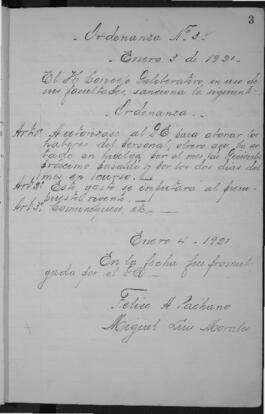 3
Ordenanza Nº 3.
Enero 3 de 1921.
El H. Concejo Deliberativo, en uso de
sus facultades, sanciona la siguiente:
Ordenanza
Art 1º Autorízase al D.E. para abonar los
haberes del personal, obrero que ha es-
tado en huelga por el mes de
próximo pasado y por los dos días del
mes en curso.
Art 2º Este gasto se imputará al presu-
puesto vigente.
Art 3º Comuníquese, etc.
Enero 4 - 1921
En la fecha fue promul-
gada por el D.E.
Felix A Pachano
Miguel Luis Morales